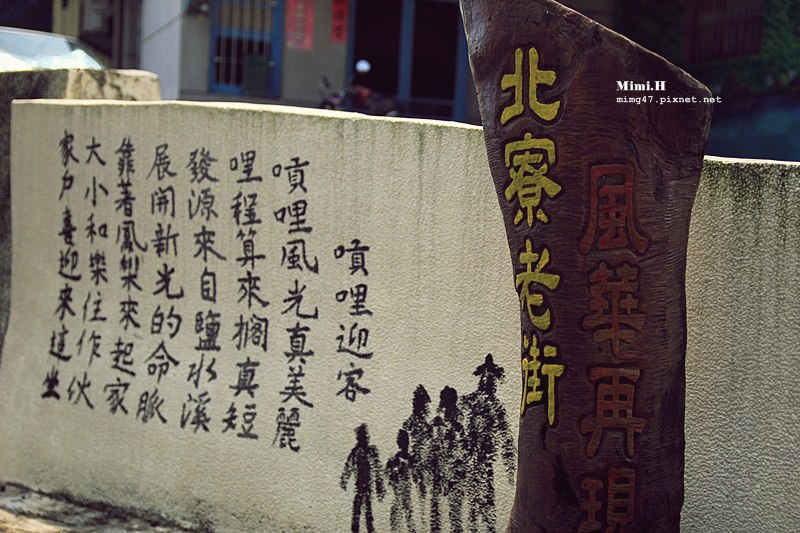 北寮老街
風華再現
嘪哩迎客
嘪哩風光真美麗
哩程算來擱真短
發源來自鹽水溪
展開新光的命脈
靠著鳳梨來起家
大小和樂住作伙
家戶喜迎來這坐
Mimi.H
mimg47.pixnet.net